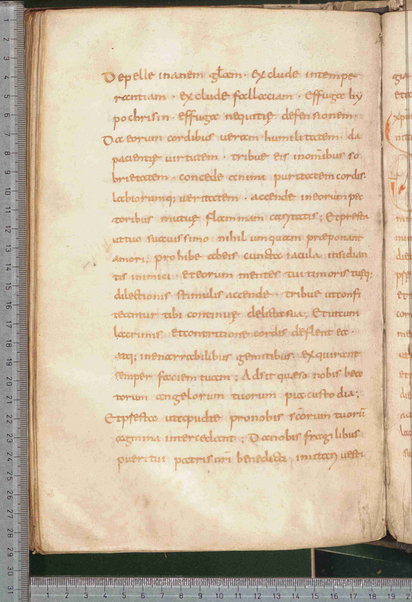 Depelle inanem gl̄am · exclude intempe
rantiam · exclude fallaciam · effuga hy
pochrisin · effuga nequitię defensionem ·
Da eorum cordibus ueram humilitatem · da
patientię uirtutem · tribue eis inomnibus so
brietatem · concede animae puritatem cordis ·
labiorumq; ueritatem · accende ineorum pec
toribus mutuę flammam caritatis ; Et presta
ut tuo suauissimo nihil umquam praeponant
amori · prohibe ab eis cuncta iacula insidian
tis inimici · et eorum mentes tui timoris tuęq;
dilectionis stimulis accende · tribue ut confi
teantur tibi continuę delicta sua · Et ut cum
lacrimis et contritione cordis defleant ea ·
atq; inenarrabilibus gemitibus exquirant
semper faciem tuam ; Adsit quaeso nobis bea
torum angelorum tuorum pia custodia ;
pro nobis sc̄orum tuorū
agmina intercedant ; Da nobis fragilibus
pueri tui patris nr̄i benedicti